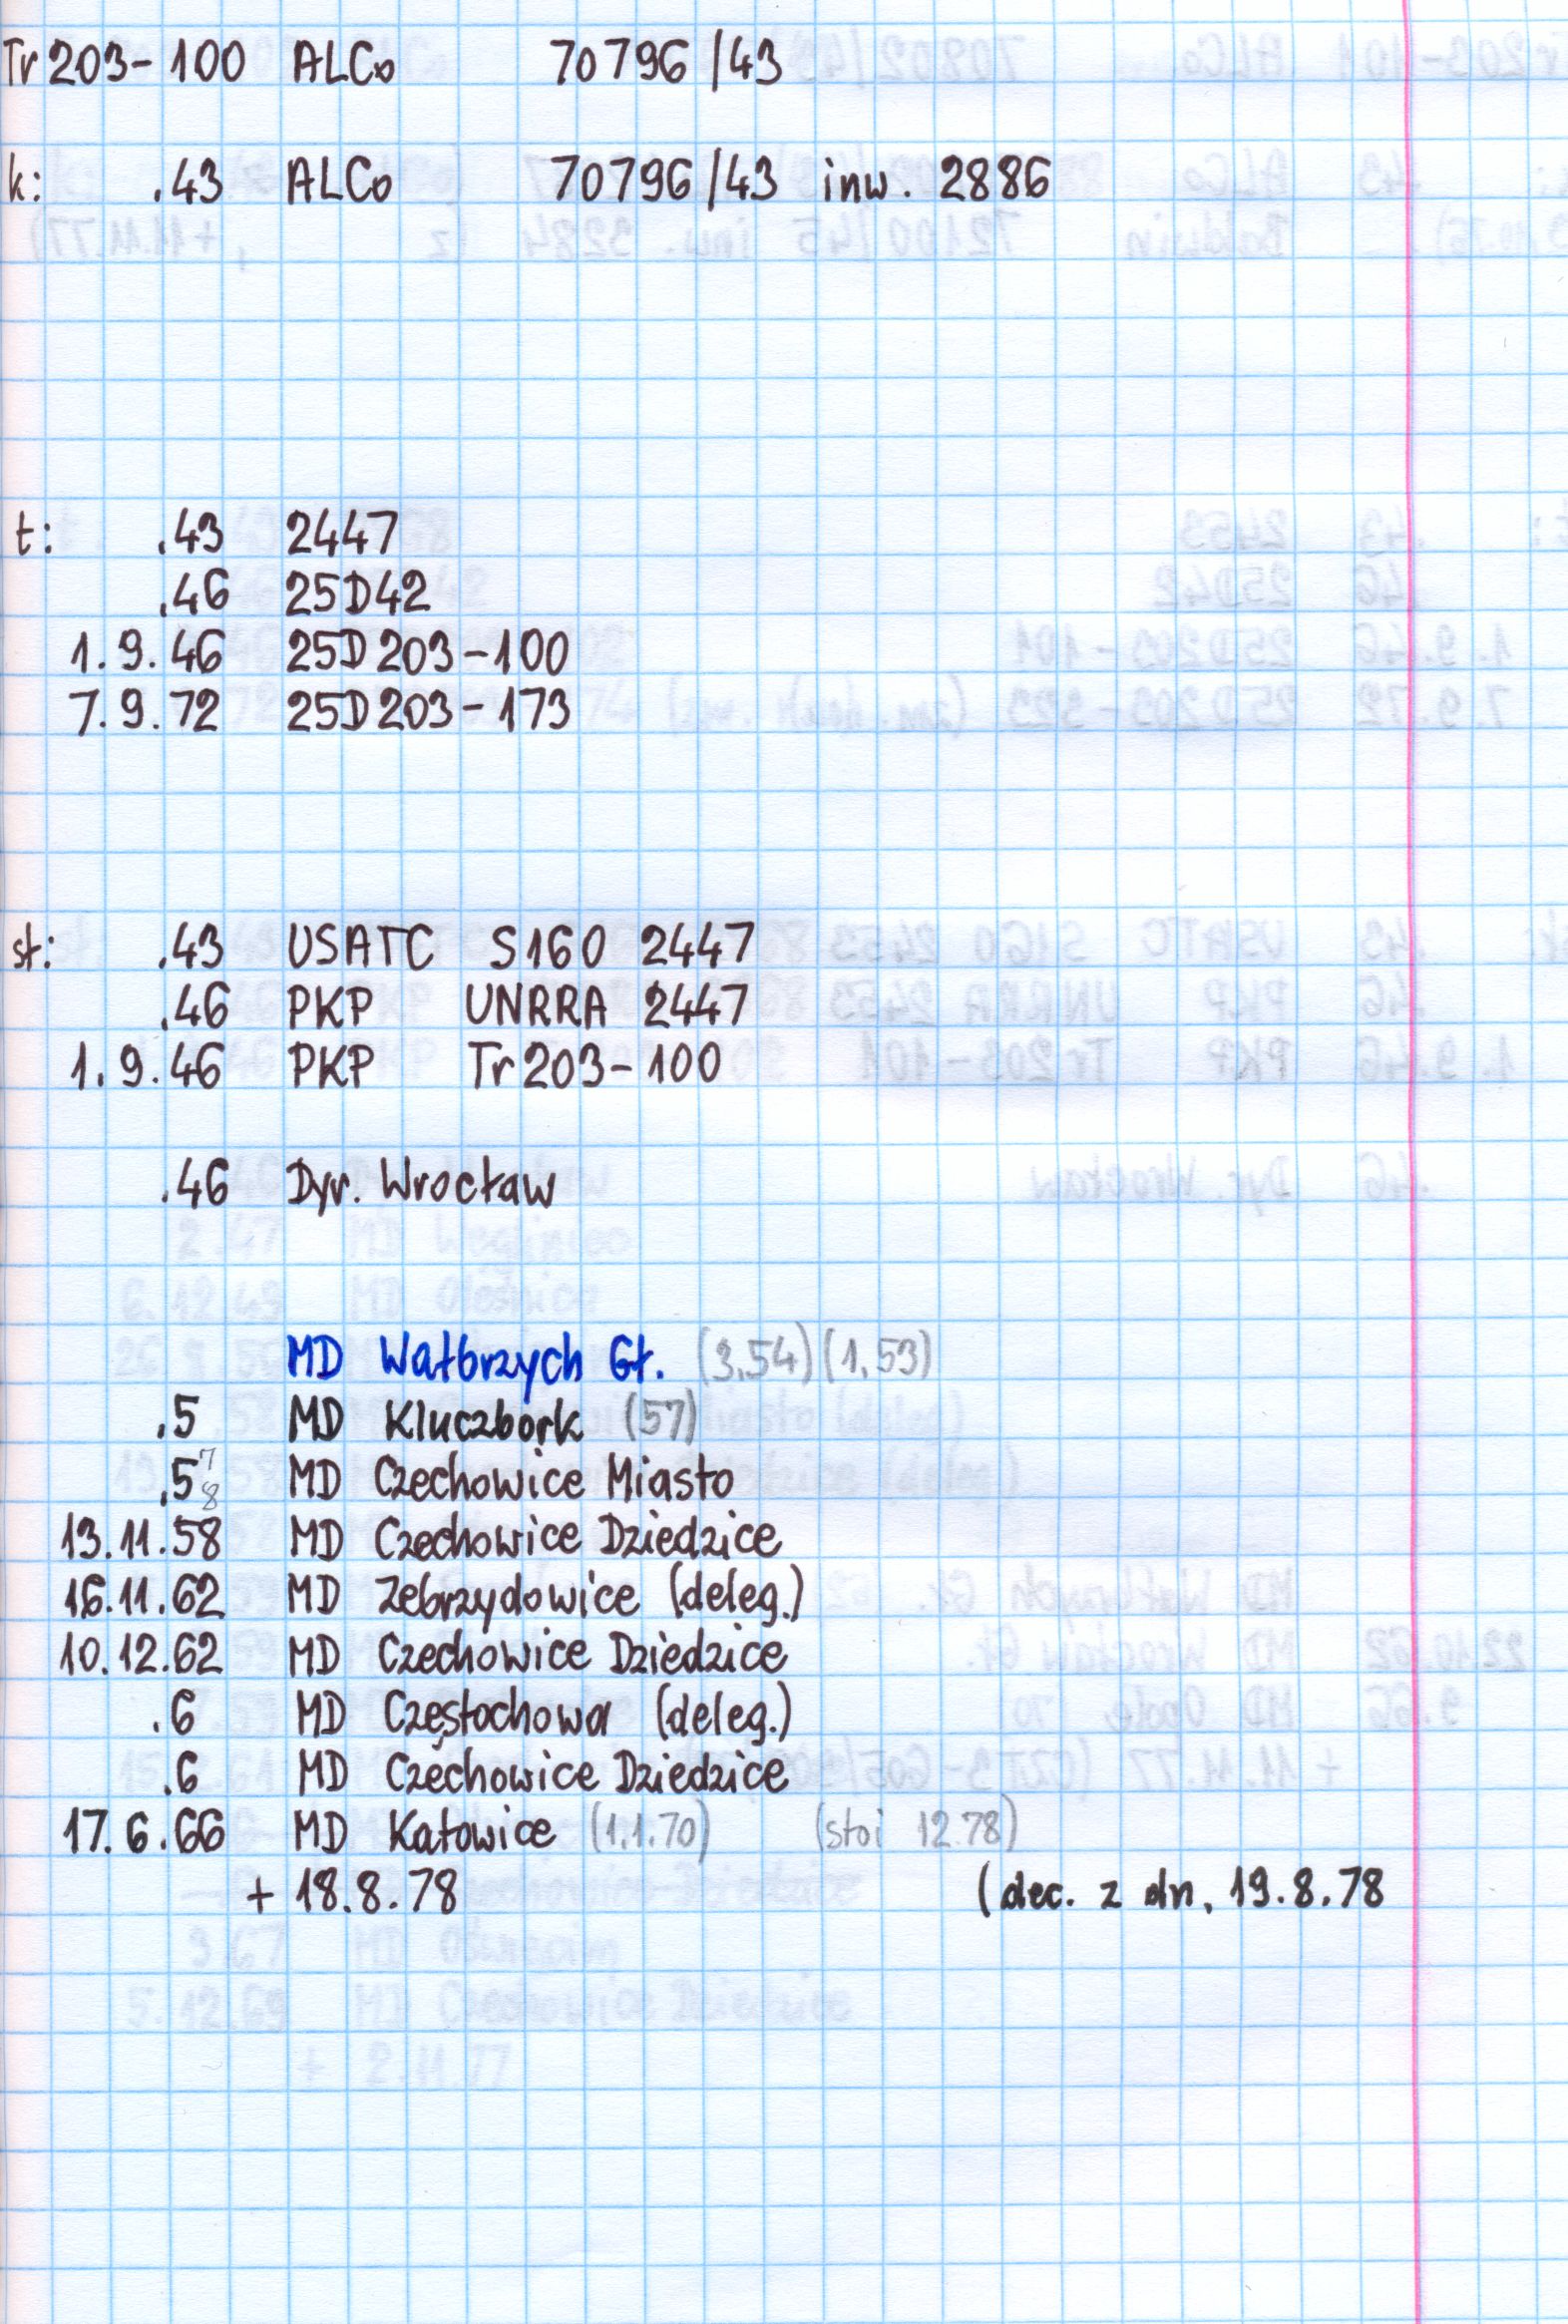 Tr 203-100 ALCo 70796/43
k: .43 ALCo 70796/43 inw. 2886
t: .43 2447
.46 25D42
1.9.46 25D203-100
7.9.72 25D203-173
st: .43 USATC S160 2447
.46 PKP UNRRA 2447
1.9.46 PKP Tr203-100
.46 Dyr. Wrocław
MD Wałbrzych Gł. (3.54) (1.53)
.5 MD Kluczbork (57)
.5 7 8 MD Czechowice Miasto
13.11.58 MD Czechowice Dziedzice
16.11.62 MD Zebrzydowice (deleg.)
10.12.62 MD Czechowice Dziedzice
.6 MD Częstochowa (deleg.)
.6 MD Czechowice Dziedzice
17.6.66 MD Katowice (1.1.70) (stoi 12.78)
+ 18.8.78 (dec. z dn. 19.8.78